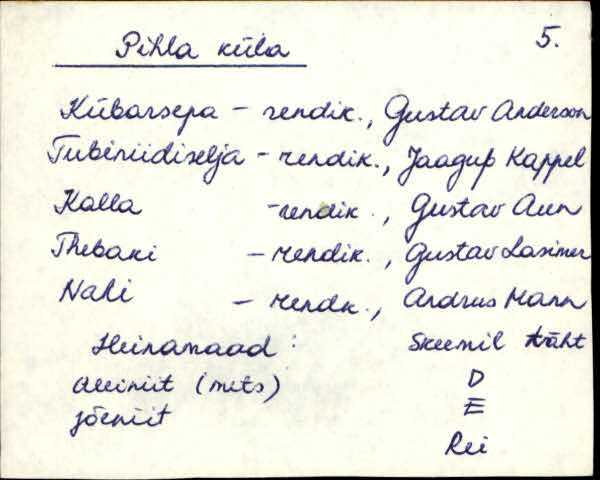 Pihla küla 5.
Kübarsepa - rendik., Gustav Anderson
- rendik., Jaagup Kappel
Kalla - rendik., Gustav Aun
- rendik., Gustav
- rendk., Andrus Mann
Heinamaad: Skeemil täht
(mets) D
jõeniit E
Rei